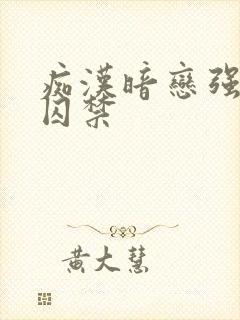 痴漢暗戀强
囚禁
黃大慧